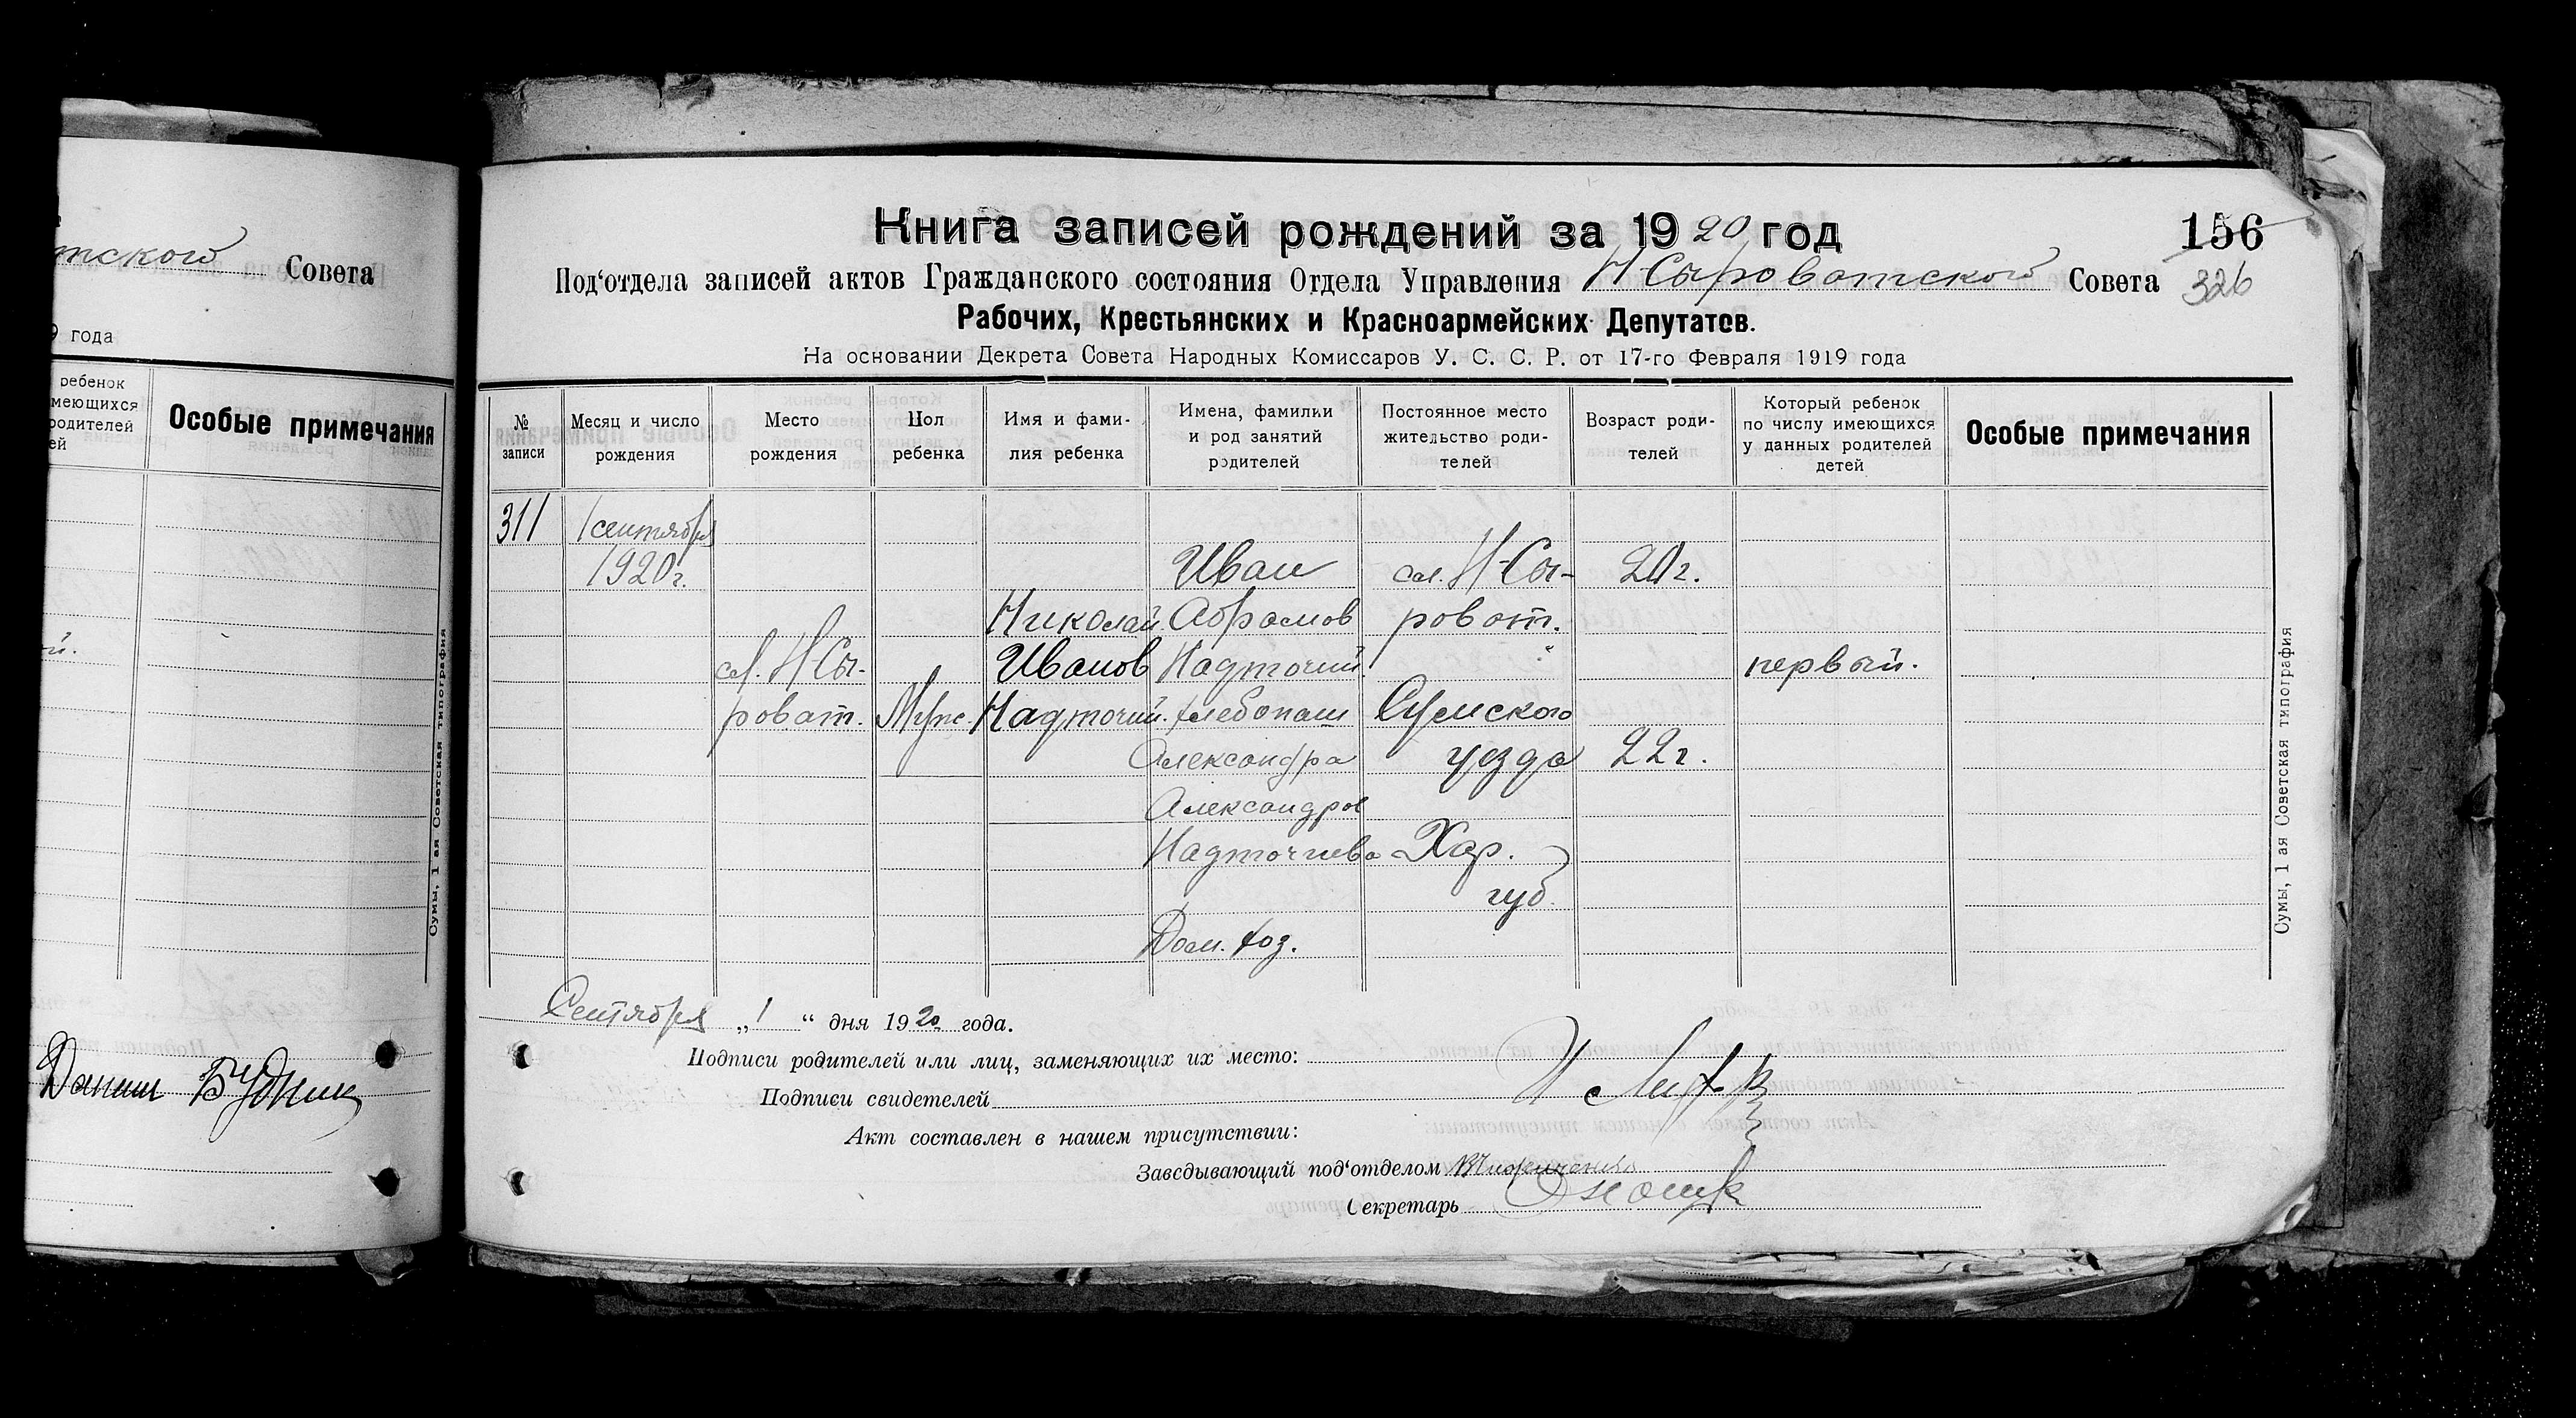 тского Совета
9 года
ребенок
меющихся
родителей
ей
Особые примечания
й.
Сумы, 1 ая Советская типография
Данил Будник
Книга записей рождений за 1920 год
156
Под'отдела записей актов Гражданского состояния Отдела Управления Н-Сыроватского Совета
326
Рабочих, Крестьянских и Красноармейских Депутатов.
На основании Декрета Совета Народных Комиссаров У. С. С. Р. от 17-го Февраля 1919 года
№ записи
Месяц и число рождения
Место рождения
Пол ребенка
Имя и фами-
лия ребенка
Имена, фамилии
и род занятий
родителей
Постоянное место
жительство роди-
телей
Возраст роди-
телей
Который ребенок
по числу имеющихся
у данных родителей
детей
Особые примечания
311
1 сентября
1920 г.
сл. Н-Сы-
роват.
Муж.
Николай
Иванов
Надточий.
Иван
Абрамов
Надточий.
хлебопаш
Александра
Александров
Надточиева
Дом. хоз.
сл. Н-Сы-
роват.
Сумского
уезда
Хар.
губ.
20 г.
22 г.
первый.
Сумы, 1 ая Советская типография
Сентября „1“ дня 1920 года.
Подписи родителей или лиц, заменяющих их место:
Подписи свидетелей
Акт составлен в нашем присутствии:
Заведывающий под'отделом
Секретарь